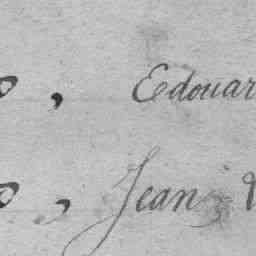 o, Edouar
o, Jean